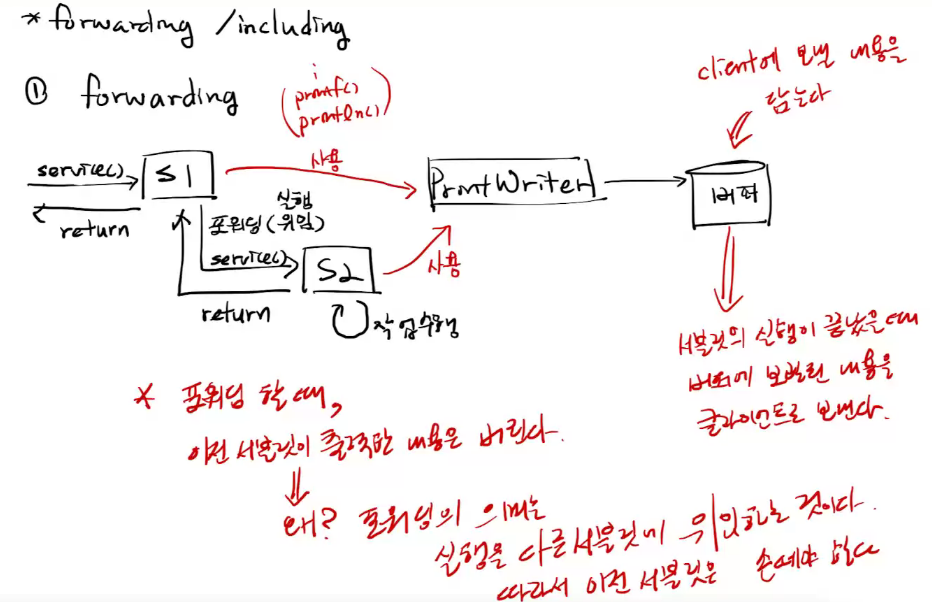 * forwarding / including
① forwarding
printf()
println()
client에 보낼 내용을
담는다
service()
S1
사용
PrintWriter
버퍼
return
실행
포워딩(위임)
service()
S2
사용
return
작업수행
서블릿의 실행이 끝났을 때
버퍼에 보관된 내용을
클라이언트로 보낸다.
* 포워딩 할 때,
이전 서블릿이 출력한 내용은 버린다.
왜? 포워딩의 의미는
실행을 다른 서블릿에 위임하는 것이다.
따라서 이전 서블릿은 손떼야 없다